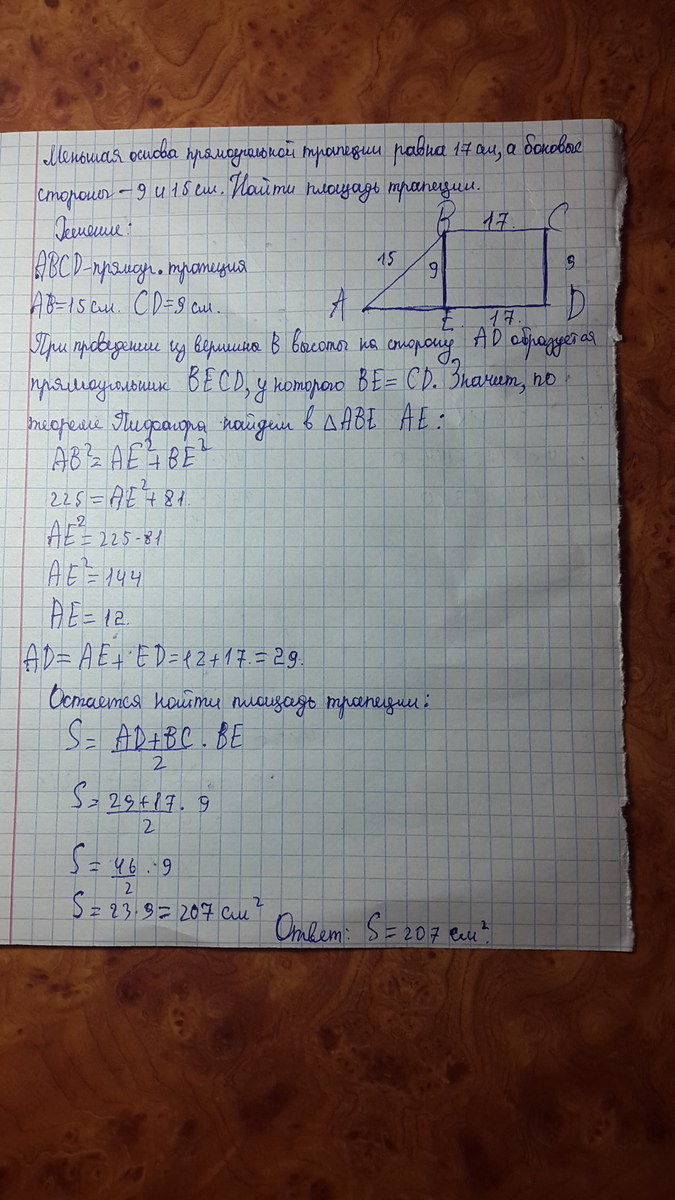 Меньшая основа прямоугольной трапеции равна 17 см, а боковые
стороны – 9 и 15 см. Найти площадь трапеции.
Решение:
B 17. C
15 9 9
A E 17. D
ABCD-прямоуг. трапеция
AB=15 см. CD=9 см.
При проведении из вершины B высоты на сторону AD образуется
прямоугольник BECD, у которого BE=CD. Значит, по
теореме Пифагора найдем в △ABE AE:
AB²=AE²+BE²
225=AE²+81.
AE²=225-81
AE²=144
AE=12.
AD=AE+ED=12+17.=29.
Остается найти площадь трапеции:
S= (AD+BC)/2 · BE
S= (29+17)/2 · 9
S= 46/2 · 9
S=23·9=207 см²
Ответ: S=207 см².